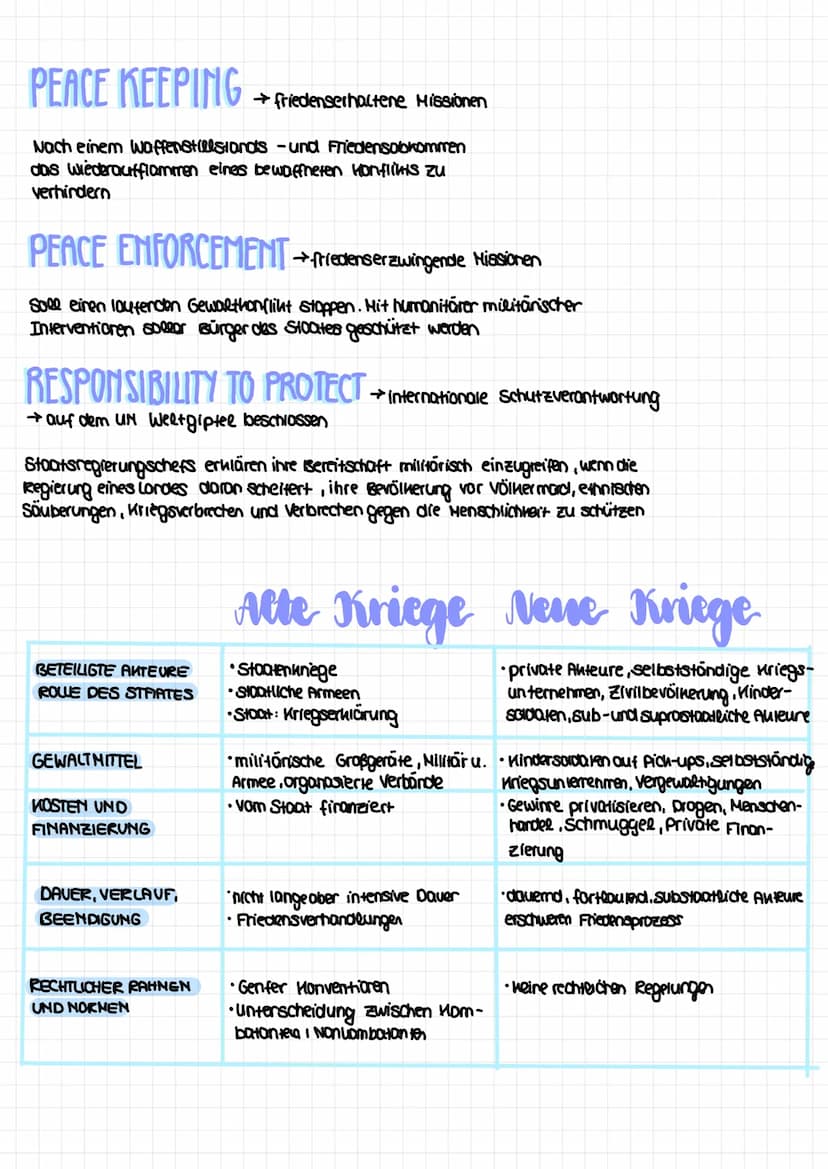 PEACE KEEPING → friedenserhaltene Missionen
Nach einem Waffenstillstands - und Friedensabkommen
das Wiederaufflammen eines bewaffneten Konflikts zu
verhindern
PEACE ENFORCEMENT → friedenserzwingende Missionen
Soll einen laufenden Gewaltkonflikt stoppen. Mit humanitärer militärischer
Interventionen sollen Bürger des Staates geschützt werden
RESPONSIBILITY TO PROTECT → internationale Schutzverantwortung
→ auf dem UN Weltgipfel beschlossen
Staatsregierungschefs erklären ihre Bereitschaft militärisch einzugreifen, wenn die
Regierung eines Landes daran scheitert, ihre Bevölkerung vor Völkermord, ethnischen
Säuberungen, Kriegsverbrechen und Verbrechen gegen die Menschlichkeit zu schützen
Alte Kriege Neue Kriege
BETEILIGTE AKTEURE
ROLLE DES STAATES
• Staatenkriege
• Staatliche Armeen
• Staat: Kriegserklärung
• private Akteure, selbstständige Kriegs-
unternehmen, Zivilbevölkerung, Kinder-
soldaten, sub- und suprastaatliche Akteure
GEWALTMITTEL
• militärische Großgeräte, Militär u.
Armee, organisierte Verbände
• Kindersoldaten auf Pick-ups, selbstständig
Kriegsunternehmen, Vergewaltigungen
KOSTEN UND
FINANZIERUNG
• vom Staat finanziert
• Gewinne privatisieren, Drogen, Menschen-
handel, Schmuggel, Private Finan-
zierung
DAUER, VERLAUF,
BEENDIGUNG
• nicht lange aber intensive Dauer
• Friedensverhandlungen
• dauernd, fortlaufend, substaatliche Akteure
erschweren Friedensprozess
RECHTLICHER RAHMEN
UND NORMEN
• Genfer Konventionen
• Unterscheidung zwischen Kom-
batanten / Nonkombatanten
• keine rechtlichen Regelungen